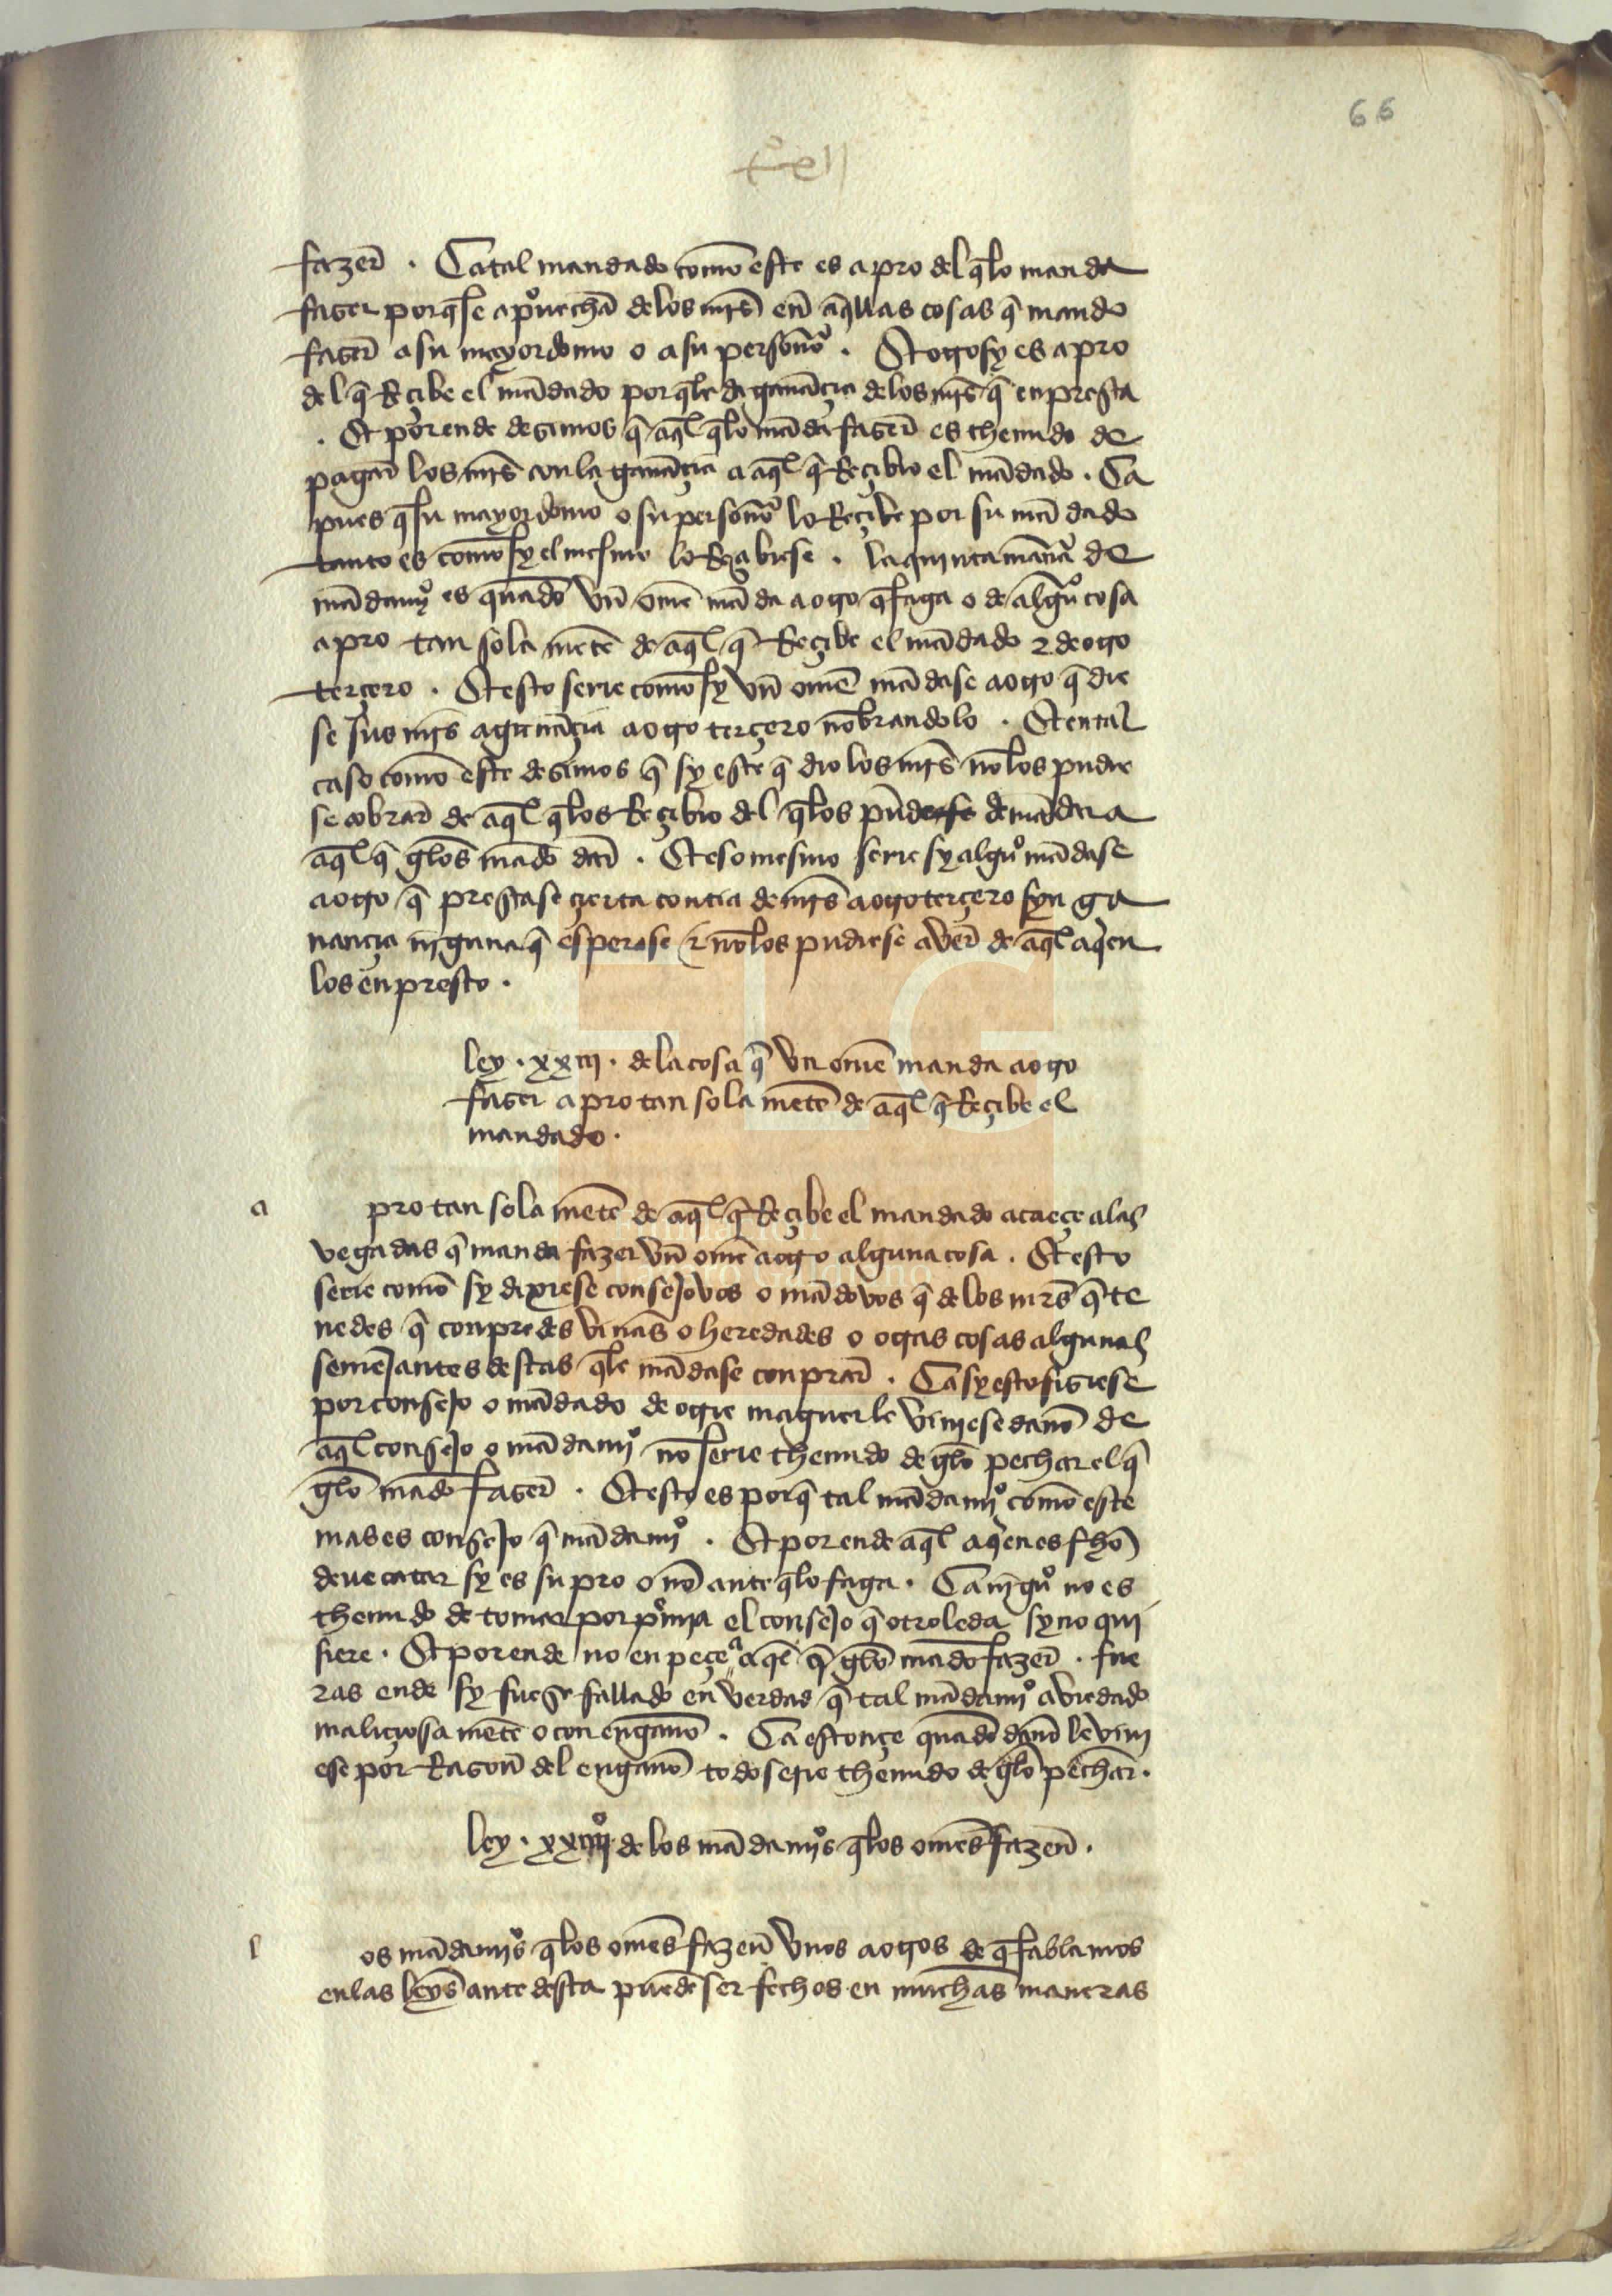 66
fazer̄ . Ca tal mandado comō este es a pro del q̄lo manda
facer porq̄ se ap̊uechā delos mr̄s en̄ aq̄llas cosas q̄ mando
facer̄ a su mayordomo o a su personō . Et ot̊sy es a pro
del q̄ Reçibe el mādado por q̄le da ganāçia delos mr̄s q̄ enpresta
. Et por ende desimos q̄ aq̄l q̄lo māda facer̄ es thenudo de
pagar̄ los mr̄s con la ganāçia a aq̄l q̄ Reçibio el mādado . Ca
pues q̄ su mayordomo o su personō lo Reçibe por su mādado
tanto es comō sy el mesmo lo Rzçibiese . la quinta manā de
mādamj̊ es quādo vn̄ omē māda a ot̊ q̄ faga o de algū cosa
a pro tan sola mētē de aq̄l q̄ Reçibe el mādado ⁊ de ot̊
terçero . Et esto serie comō sy vn̄ omē mādase a ot̊ q̄ die
se sus mr̄s a ganāçia a ot̊ terçero nōbrandolo . Et en tal
caso comō este desimos q̄ sy este q̄ dio los mr̄s nō los pudie
se cobrar̄ de aq̄l q̄los Reçibio del q̄los pūde demādar a
aq̄l q̄ gelos mādo dar̄ . Et eso mesmo serie sy algū̊ mādase
a ot̊ q̄ prestase çierta contia de mr̄s a ot̊ terçero syn ga
nançia nīguna q̄ esperase ⁊ nō los pudiese aver̄ de aq̄l aq̄en
los enpresto .
ley . xxiij . dela cosa q̄ vn omē manda a ot̊
facer a pro tan sola mētē de aq̄l q̄ Reçibe el
mandado .
a pro tan sola mētē de aq̄l q̄ Reçibe el mandado acaeçe alas
vegadas q̄ manda fazer vn̄ omē a ot̊ alguna cosa . Et esto
serie comō sy dixiese consejovos o mādovos q̄ delos mr̄s q̄ te
nedes q̄ conpredes vinās o heredades o ot̄as cosas algunas
semējantes destas q̄le mādase conprar̄ . Ca sy esto fisiese
por consejo o mādado de ot̄ie maguer le viniese danō de
aq̄l consejo o mādamj̊ nō serie thenudo de gelō pechar el q̄
gelō mādo facer̄ . Et esto es porq̄ tal mādamj̊ comō este
mas es consejo q̄ mādamj̊ . Et por ende aq̄l aq̄en es fhō
deue catar sy es su pro o nō ante q̄lo faga . Ca nīgū̊ no es
thenudo de tomar por p̊mia el consejo q̄ otro le da sy no qui
siere . Et por ende no enpeçe a aq̄l q̄ gelō mādo fazer̄ . fue
ras ende sy fuese fallado en verdad q̄ tal mādamj̊ avie dado
maliçiosa mētē o con enganō . Ca estonçe quādo danō le vini
ese por Rason̄ del enganō todo serie thenudo de gelō pechar̄ .
ley . xxiiij̊ delos mādamj̊s q̄los omēs fazen̄ .
l os mādamj̊s q̄los omēs fazen̄ vnos a ot̊s de q̄ fablamos
en las leyes̄ ante desta puedē ser fechos en muchas maneras